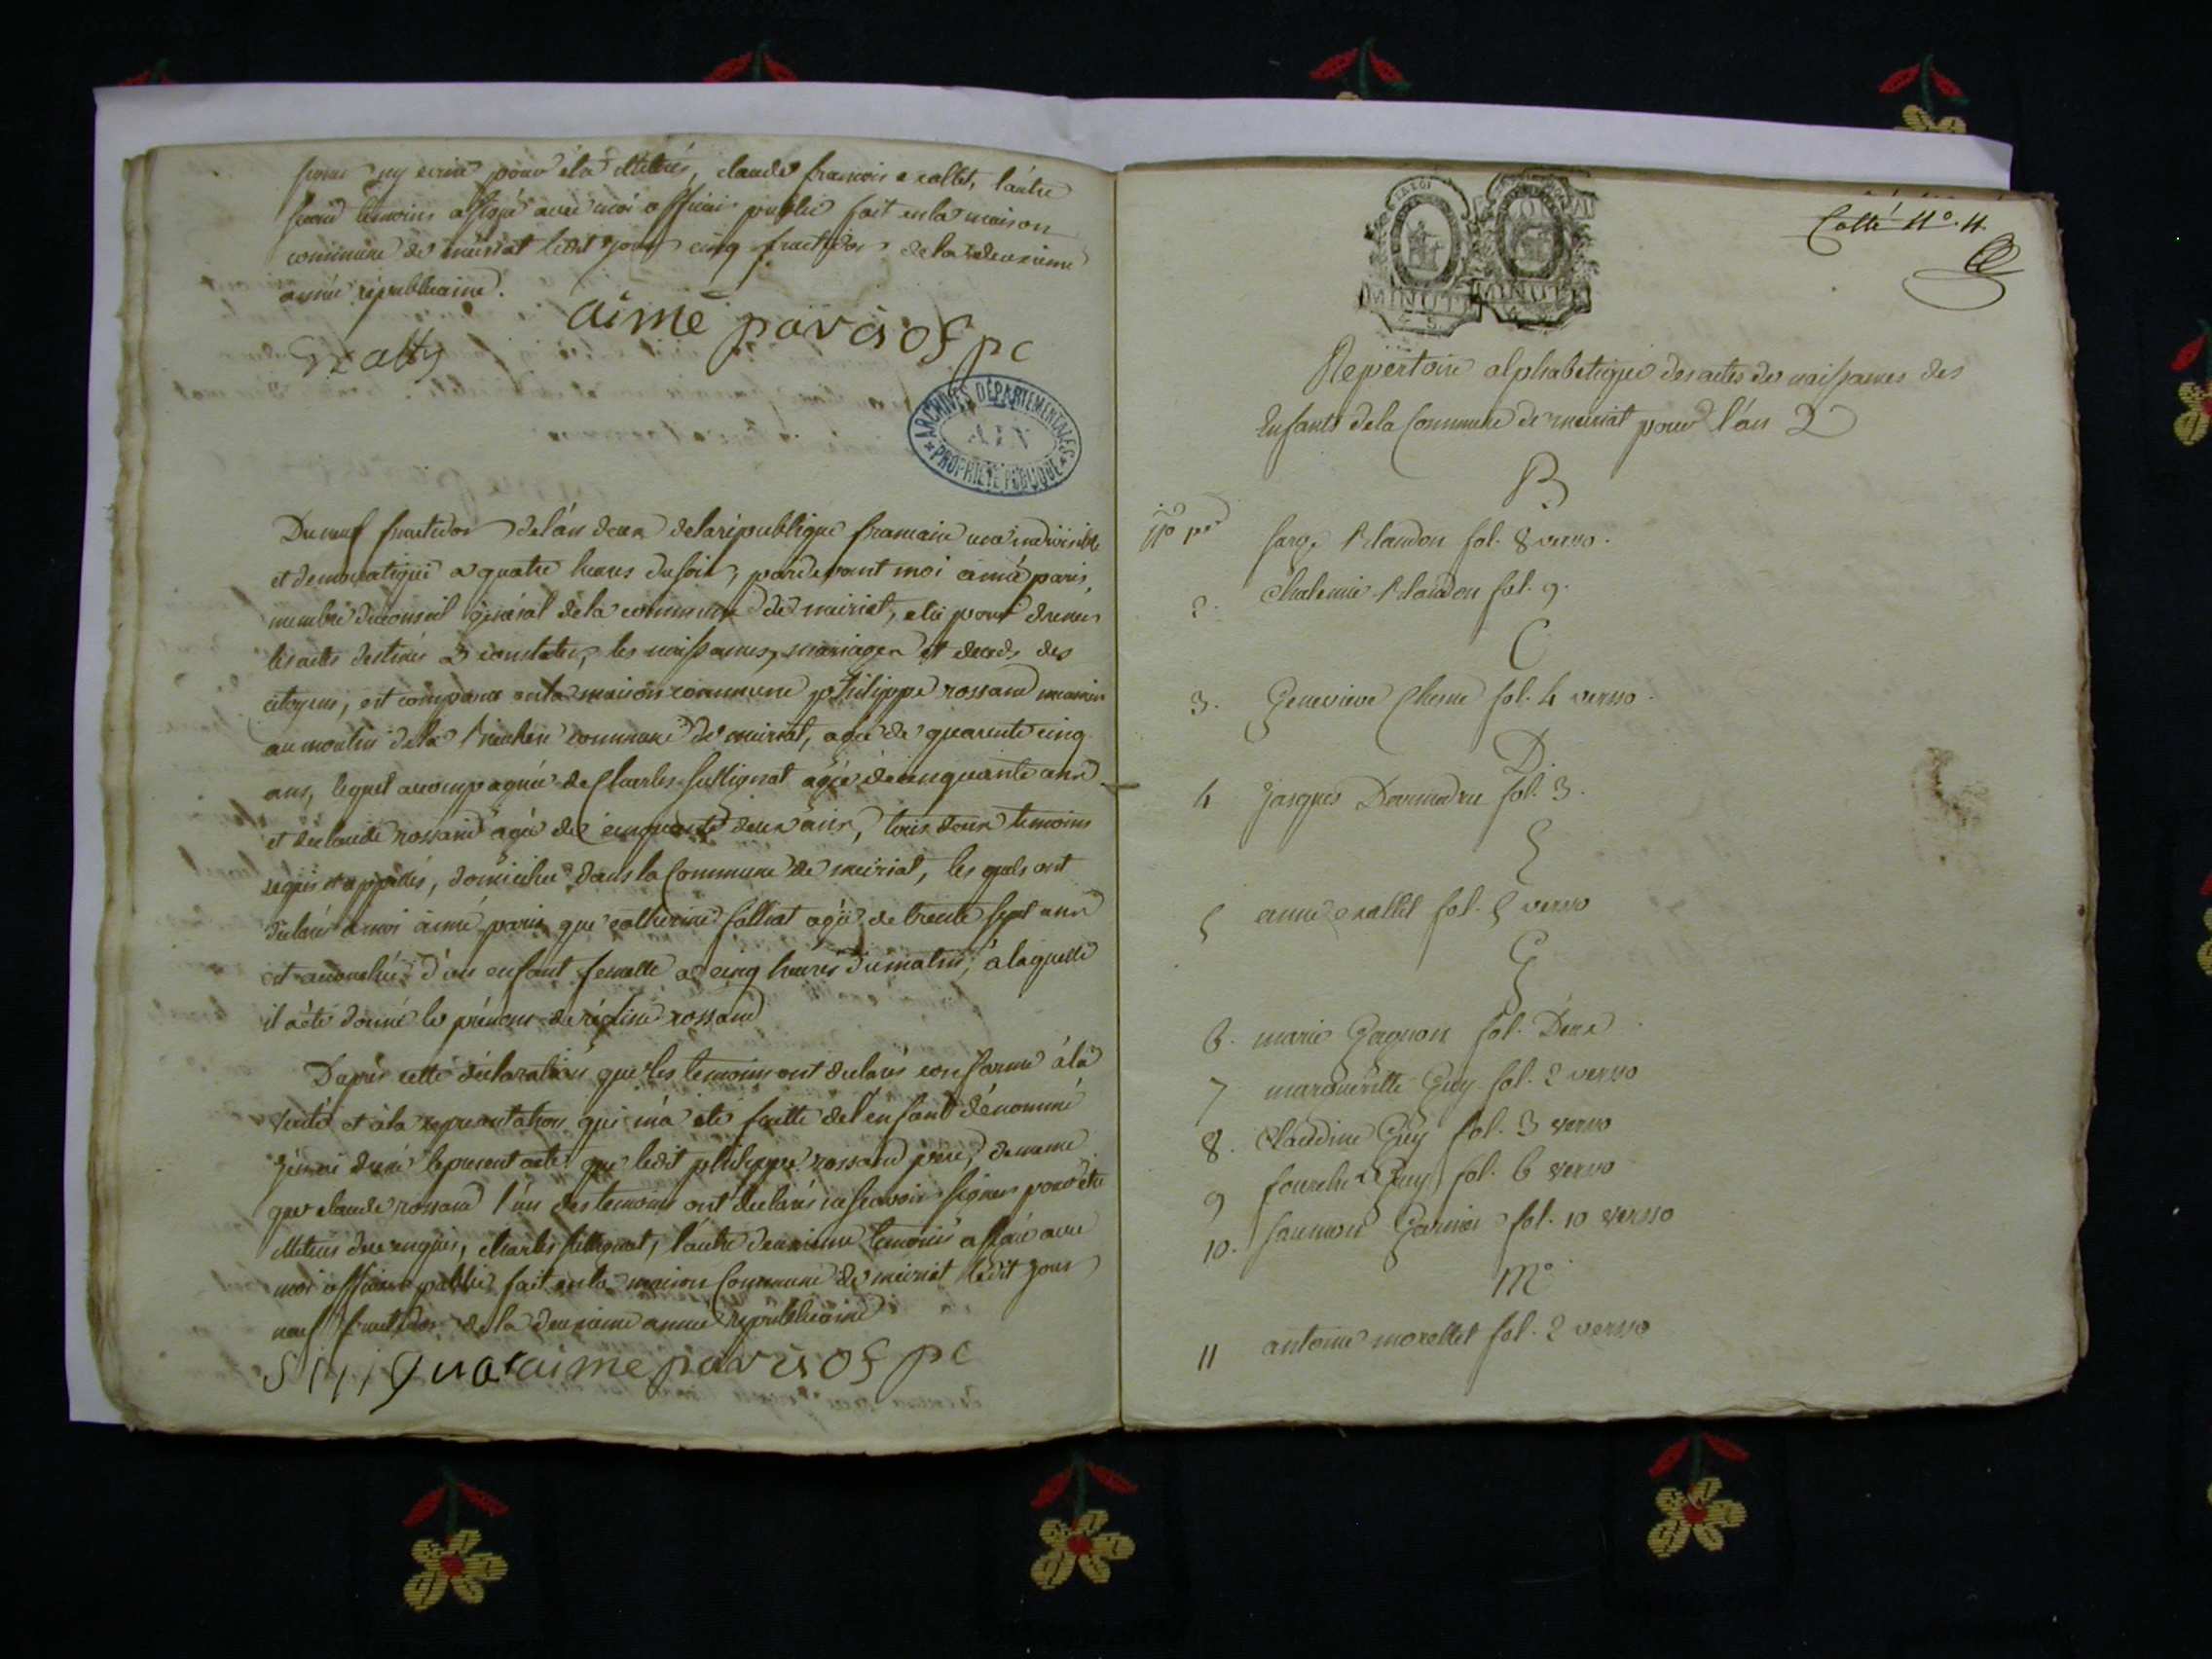 ny ecrire pour etre illitérés, claude francois exallet, l'autre
second temoins a signé avec moi officier public fait en la maison
commune de meiriat ledit jour cinq fructidor de la deuxieme
année republicaine.
aimé paris of pc
Exallet
ARCHIVES DÉPARTEMENTALES
AIN
PROPRIÉTÉ PUBLIQUE
Du neuf fructidor de l'an deux de la république francaise une indivisible
et democratique a quatre heures du soir, pardevant moi aimé paris
membre du conseil géneral de la commune de meiriat, elu pour
les actes destinés a constater, les naissances, mariages et deceds des
citoyens, est comparu en la maison commune philippe rossand meunier
au moulin de la commune de meiriat, agée de quarente cinq
ans, lequel acompagnée de Charles sillignat agée de cinquante ans
et de claude rossand agée de cinquante deux ans, tous deux temoins
requis et appellés, domicilies dans la Commune de meiriat, les quels ont
declaré a moi aimé paris que catherine agée de trente sept ans
est acouchée d'un enfant femelle a cinq heures du matin, a laquelle
il a été donné le prénoms de rossand
D'apres cette déclaration que les temoins ont declarés conforme a la
verité et a la representation qui m'a eté faitte de l'enfant dénommé
j'ai le present acte que ledit philippe rossand pere, de meme
que claude rossand l'un des temoins ont déclarés ne scavoir signer pour etre
illiterés de enquis, charles sillignat, l'autre deuxieme temoins a signé avec
moi officier public fait en la maison Commune de meiriat ledit jour
neuf fructidor de la deuxieme année republicaine
Silligna aime paris of pc
LA LOI
MINUTE MINUTE
Cotté N°. 4.
Repertoire alphabetique des actes de naissances des
Enfants de la Commune de meiriat pour l'an 2
B
fol. 8 verso.
2. fol. 9.
C
3. Genevieve Chesne fol. 4 verso.
D.
4 Jacques fol. 3.
E
5 anne exallet fol. 5 verso
G
6. marie Gagnon fol. Deux
7 margueritte Guy fol. 2 verso
8. Claudine Guy fol. 3 verso
9 Guy fol. 6 verso
10. Garnier fol. 10 verso
M
11 antoine morellet fol. 2 verso